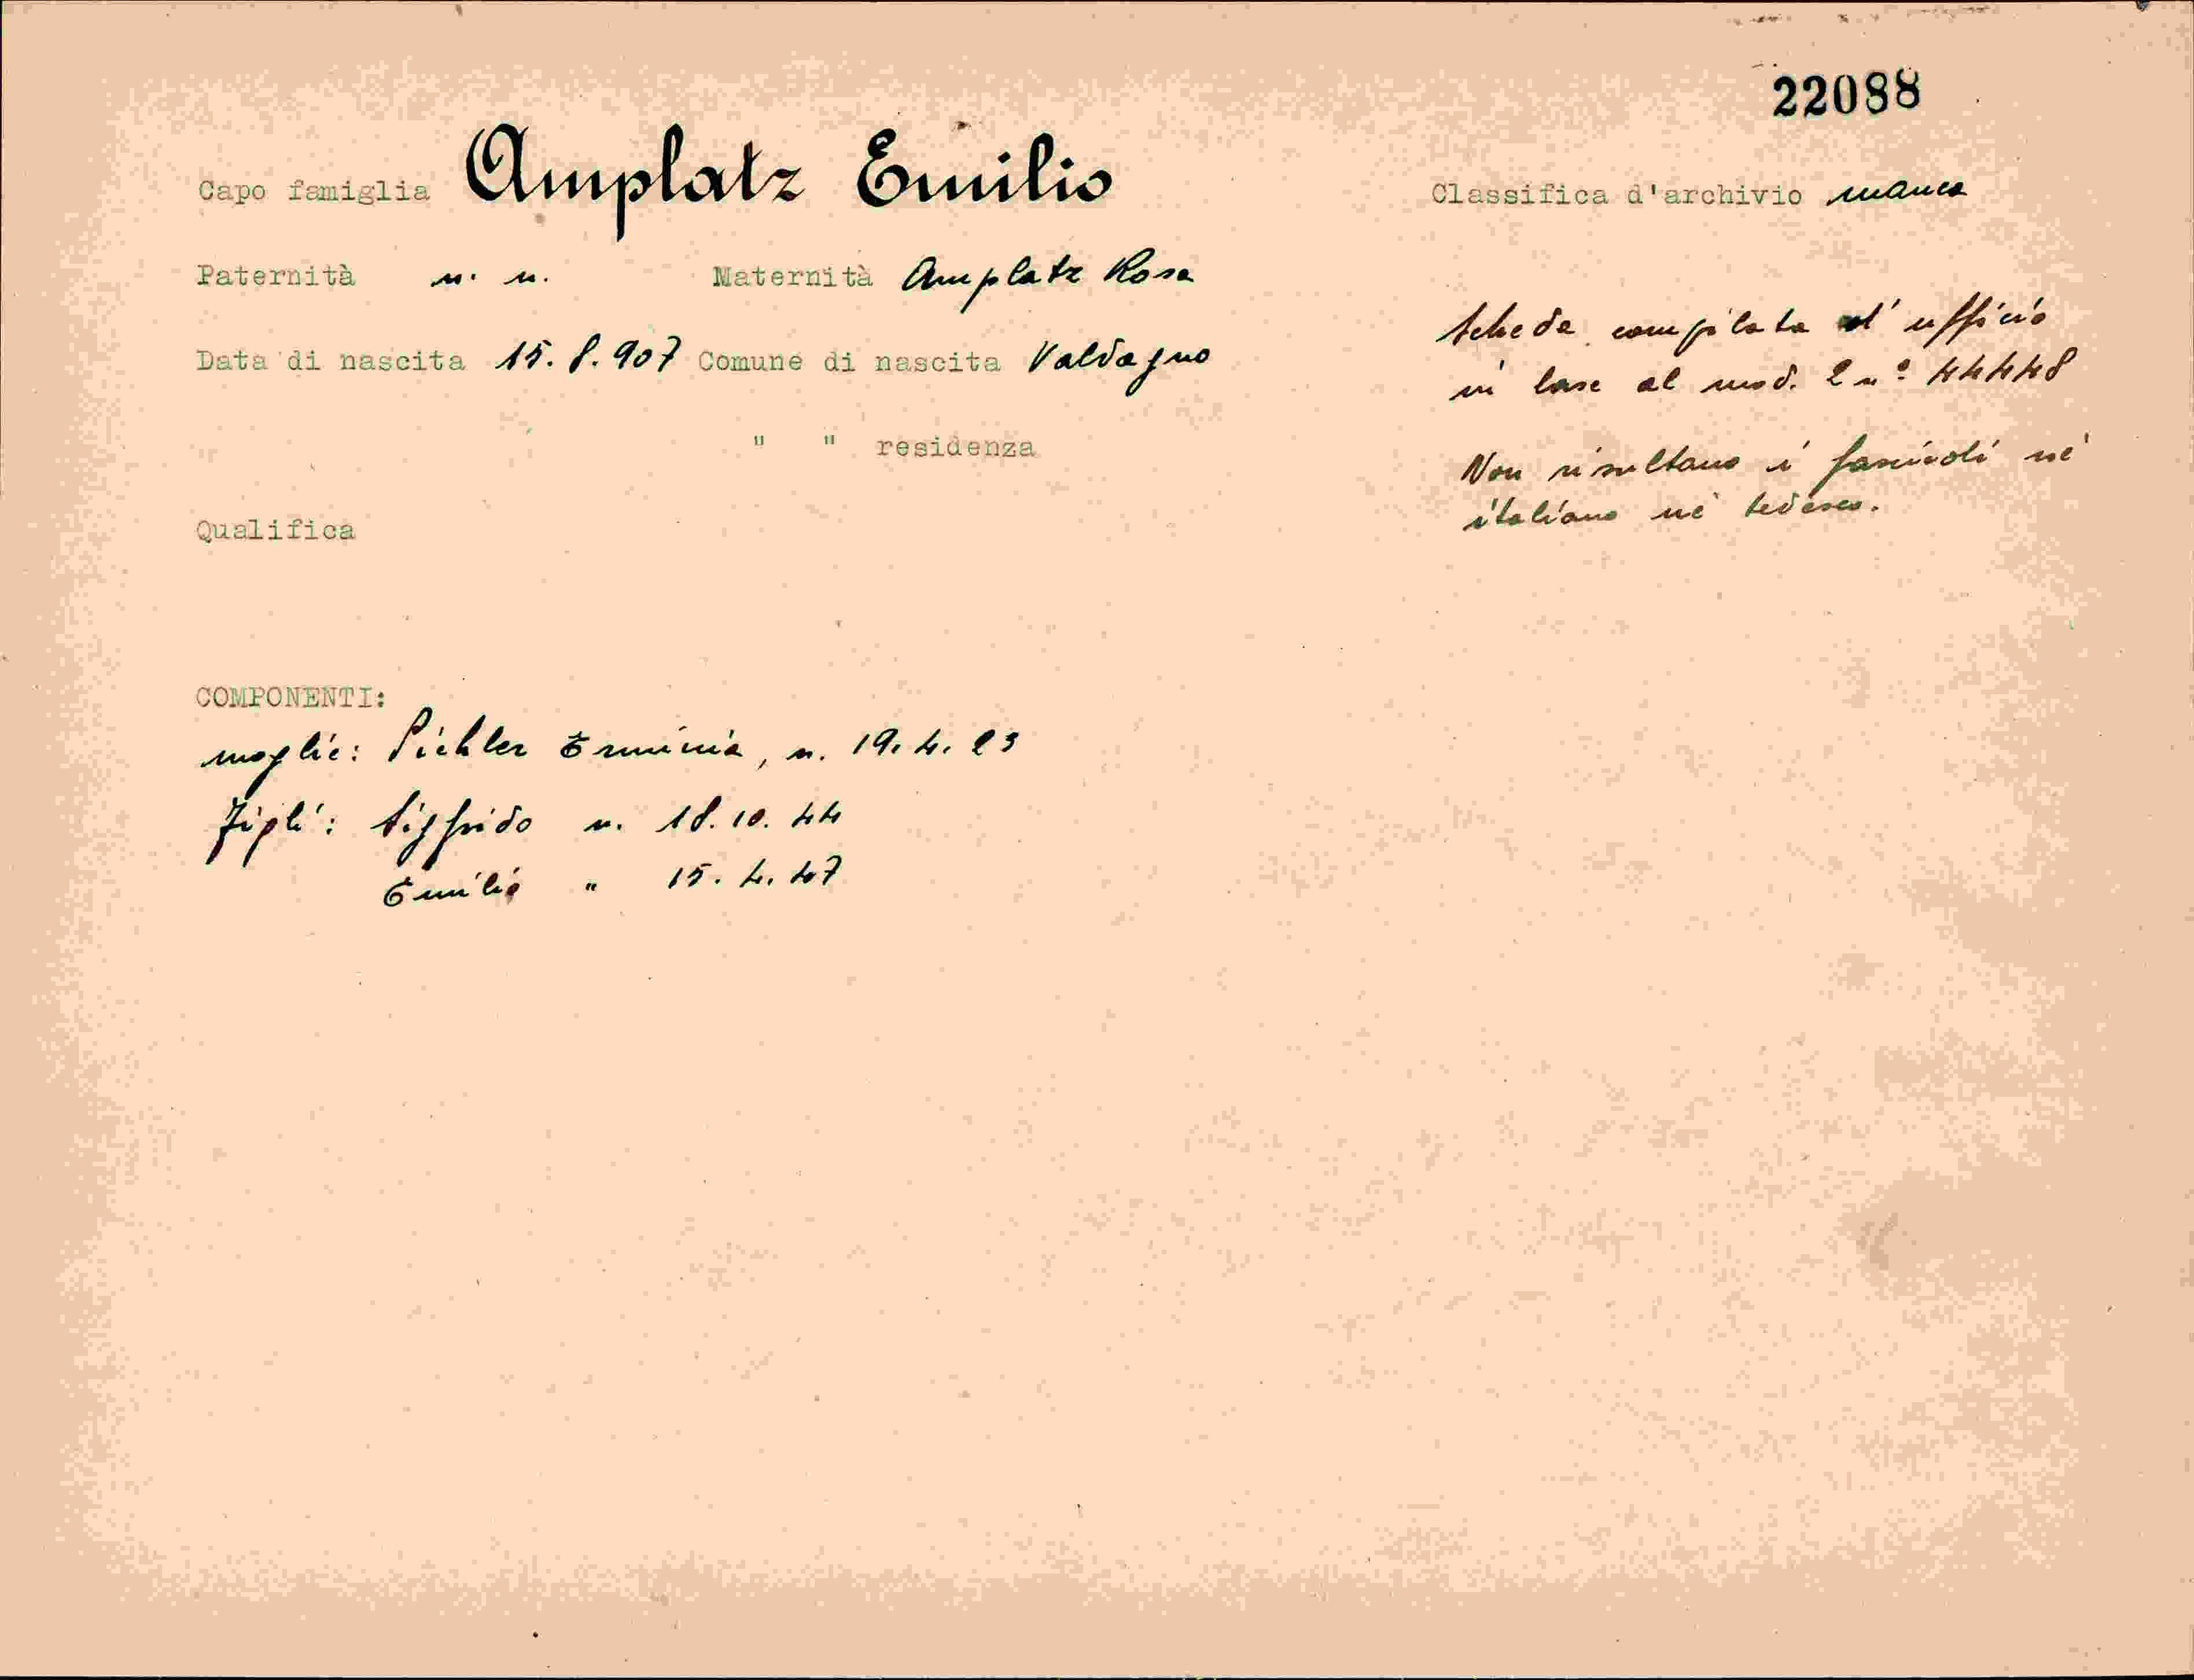 22088
Capo famiglia Amplatz Emilio
Classifica d'archivio manca
Paternità n. n. Maternità Amplatz Rosa
Data di nascita 15.8.907 Comune di nascita Valdagno
" " residenza
Qualifica
Scheda compilata d'ufficio
in base al mod. 2 n° 44448
Non risultano i fascicoli nè
italiano nè tedesco.
COMPONENTI:
moglie: Pichler Erminia, n. 19.4.23
figli: Sigfrido n. 18.10.44
Emilio " 15.4.47